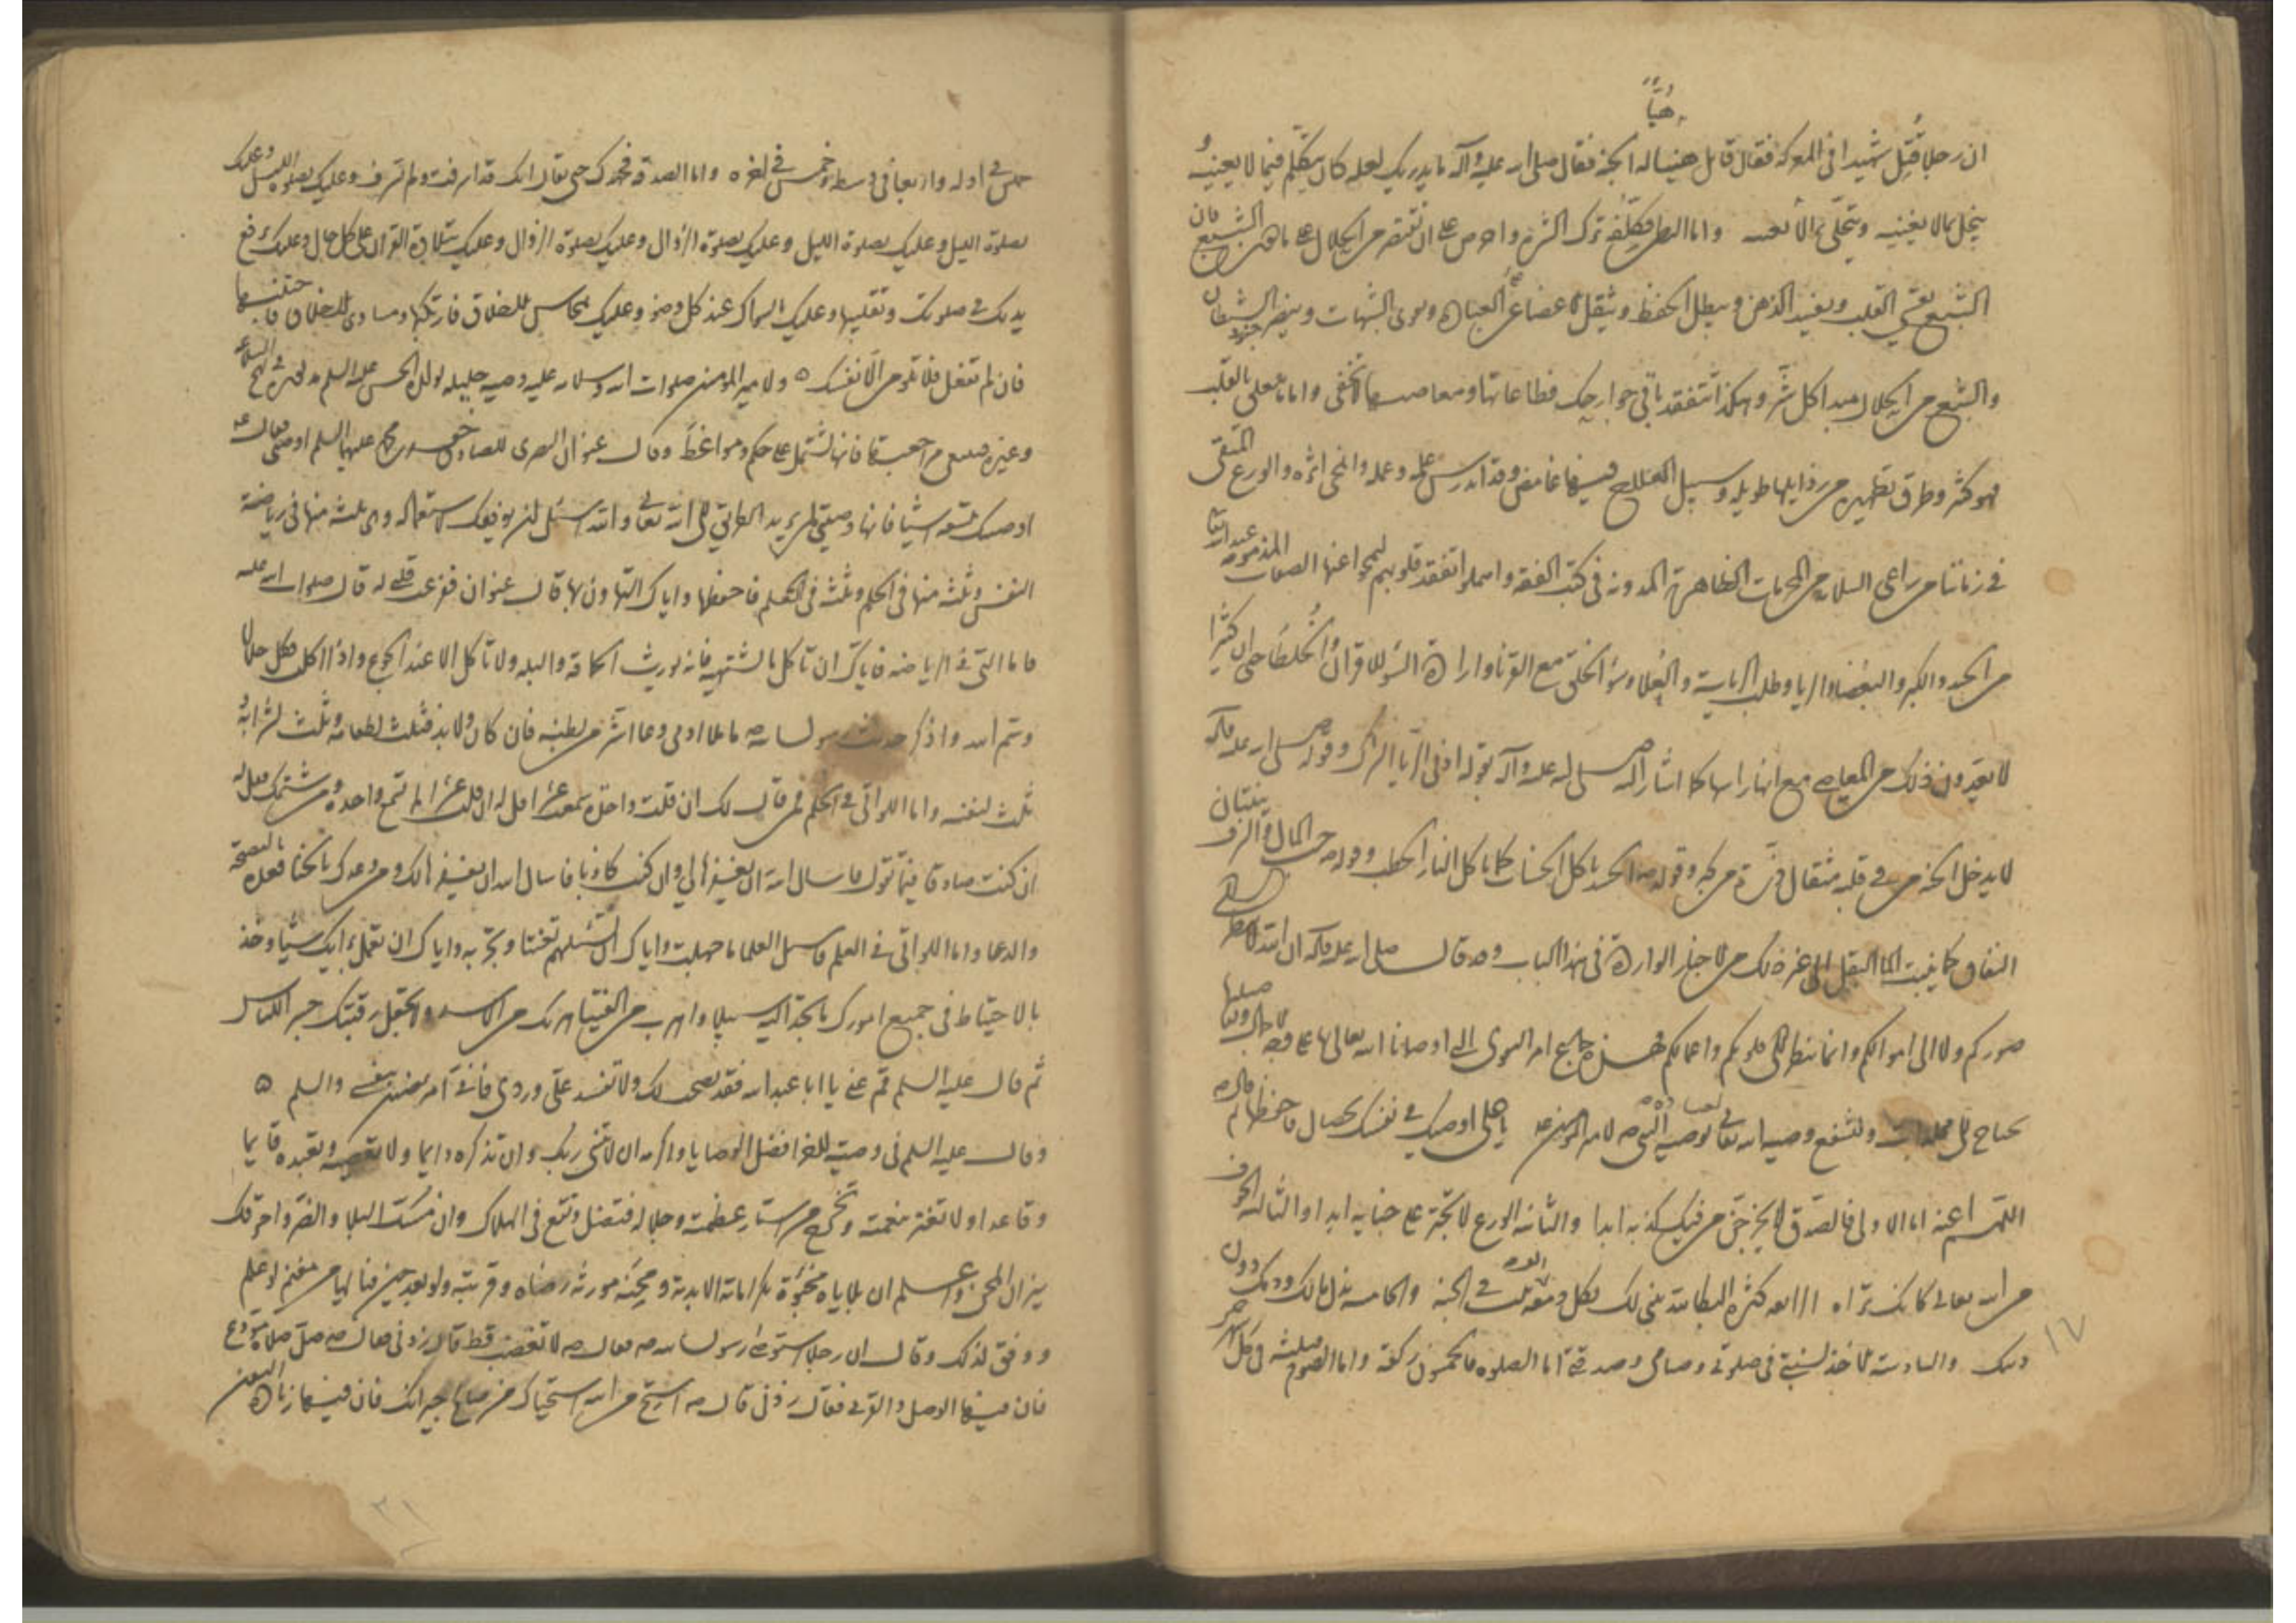 هنيئًا
ان رجلا قتل شهيدا في المعركة فقال قائل هنيئا له الجنة فقال صلى الله عليه وآله ما يدريك لعله كان يتكلم فيما لا يعنيه
يبخل بما لا يغنيه واما البطن فكلفه ترك الشره واحرص على ان تقتصر من الحلال على ما هو الشبع فان
الشبع يقسي القلب ويفسد الذهن ويبطل الحفظ ويثقل الاعضاء عن العبادة ويقوي الشهوات وينصر جنود الشيطان
والشبع من الحلال مبدا كل شر وهكذا تتفقد باقي جوارحك فطاعاتها ومعاصيها لا تخفى واما ما يتعلق بالقلب
فهو كثير وطرق تطهيره من رذايلها طويله وسبيل العلاج فيها غامض وقد اندرس علمه وعمله وانمحى اثره والورع المتقي
في زماننا من راعى السلامة من المحرمات الظاهرة المدونة في كتب الفقه واهملوا تفقد قلوبهم ليمحوا عنها الصفات المذمومة عند الله
من الحسد والكبر والبغضاء والريا وطلب الرياسة والعلا وسوء الخلق مع القرنا وارادة السوء للاقران والخلطا حتى ان كثيرا
لا يعدون ذلك من المعاصي مع انها راسها كما اشار اليه صلى الله عليه وآله بقوله ادنى الريا الشرك وقوله صلى الله عليه وآله
لا يدخل الجنة من في قلبه مثقال ذرة من كبر وقوله الحسد ياكل الحسنات كما ياكل النار الحطب وقوله حب المال والشرف ينبتان
النفاق كما ينبت الماء البقل الى غير ذلك من الاخبار الواردة في هذا الباب وقد قال صلى الله عليه وآله ان الله لا ينظر الى
صوركم ولا الى اموالكم وانما ينظر الى قلوبكم واعمالكم
يحتاج الى مجلدات ولنشفع وصيه الله تعالى بوصيه النبي ص لامير المومنين ع يا علي اوصيك في نفسك بخصال فاحفظها ثم قال
اللهم اعنه اما الاولى فالصدق لا يخرجن من فيك كذبه ابدا والثانيه الورع لا تجترء على خيانه ابدا والثالثه الخوف
من الله تعالى كانك تراه الرابعه كثرة البكا لله يبنى لك بكل دمعه بيت في الجنه والخامسه بذل مالك ودمك دون
دينك والسادسه الاخذ بسنتي في صلوتي وصيامي وصدقتي اما الصلوه فالخمسون ركعة واما الصوم فثلثه في كل شهر
خميس في اوله واربعا في وسطه وخميس في اخره واما الصدقة فجهدك حتى يقال انك قد اسرفت ولم تسرف وعليك بصلوه الليل وعليك
بصلوة الليل وعليك بصلوة الليل وعليك بصلوة الزوال وعليك بصلوة الزوال وعليك بتلاوة القران على كل حال وعليك برفع
يديك في صلوتك وتقليبها وعليك بالسواك عند كل وضوء وعليك بمحاسن الاخلاق فارتكبها ومساوى الاخلاق فاجتنبها
فان لم تفعل فلا تلومن الا نفسك ولامير المومنين صلوات الله وسلامه عليه وصيه جليله لولده الحسن عليه السلم
وغيره فانها تشتمل على حكم ومواعظ وقال عنوان البصرى للصادق جعفر بن محمد عليهما السلم اوصني فقال
اوصيك بتسعه اشيا فانها وصيتي لمن يريد الطريق الى الله تعالى والله اسئل ان يوفقك لاستعماله وهي ثلثه منها في رياضة
النفس وثلثه منها في الحلم وثلثه في العلم فاحفظها واياك والتهاون بها قال عنوان ففرغت قلبي له قال صلوات الله عليه
فاما التي في الرياضه فاياك ان تاكل ما لا تشتهيه فانه يورث الحماقة والبله ولا تاكل الا عند الجوع واذا اكلت فكل حلالا
وسم الله واذكر حديث رسول الله ص ما ملا ادمي وعاء اشر من بطنه فان كان ولا بد فثلث لطعامه وثلث لشرابه
ثلث لنفسه واما اللواتي في الحلم فمن قال لك ان قلت واحدة سمعت عشرا فقل له ان قلت عشرا لم تسمع واحدة ومن شتمك فقل له
ان كنت صادقا فيما تقول فاسال الله ان يغفر لي وان كنت كاذبا فاسال الله ان يغفر لك ومن وعدك بالخنا فعده بالنصيحة
والدعا واما اللواتي في العلم فاسئل العلما ما جهلت واياك ان تسئلهم تعنتا وتجربه واياك ان تعمل برايك شيئا وخذ
بالاحتياط في جميع امورك ما تجد اليه سبيلا واهرب من الفتيا هربك من الاسد ولا تجعل رقبتك جسرا للناس
ثم قال عليه السلم قم عني يا ابا عبد الله فقد نصحت لك ولا تفسد علي وردي فاني امرء ضنين بنفسي والسلم
وقال عليه السلم في وصية افضل الوصايا والزمه ان لا تنسى ربك وان تذكره دايما ولا تعصيه وتعبده قايما
وقاعدا ولا تغتر بنعمته وتخرج من استار عظمته وجلاله فتضل وتقع في الهلاك وان مسك البلا والضر واحرقك
نيران المحن واعلم ان بلاياه محشوة بكراماته الابدية ومحنه مورثه رضاه وقربته ولو بعد حين فيا لها من مغنم لمن علم
ووفق لذلك وقال ان رجلا استوصى رسول الله ص فقال ص لا تغضب قط قال زدني فقال ص صل صلاة مودع
فان فيها الوصل والقربى فقال زدني قال ص استح من الله استحياك من صالح جيرانك فان فيها زيادة اليقين